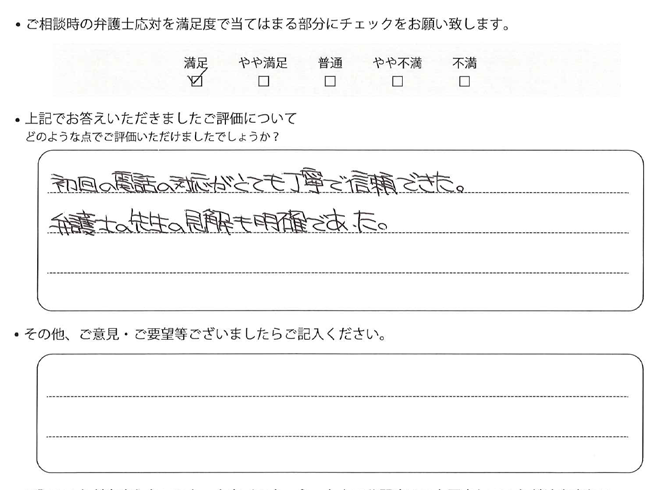 ・ご相談時の弁護士応対を満足度で当てはまる部分にチェックをお願い致します。
満足 やや満足 普通 やや不満 不満
・上記でお答えいただきましたご評価について
どのような点でご評価いただけましたでしょうか？
初回の電話の対応がとても丁寧で信頼できた。
弁護士の先生の見解も明確であった。
・その他、ご意見・ご要望等ございましたらご記入ください。